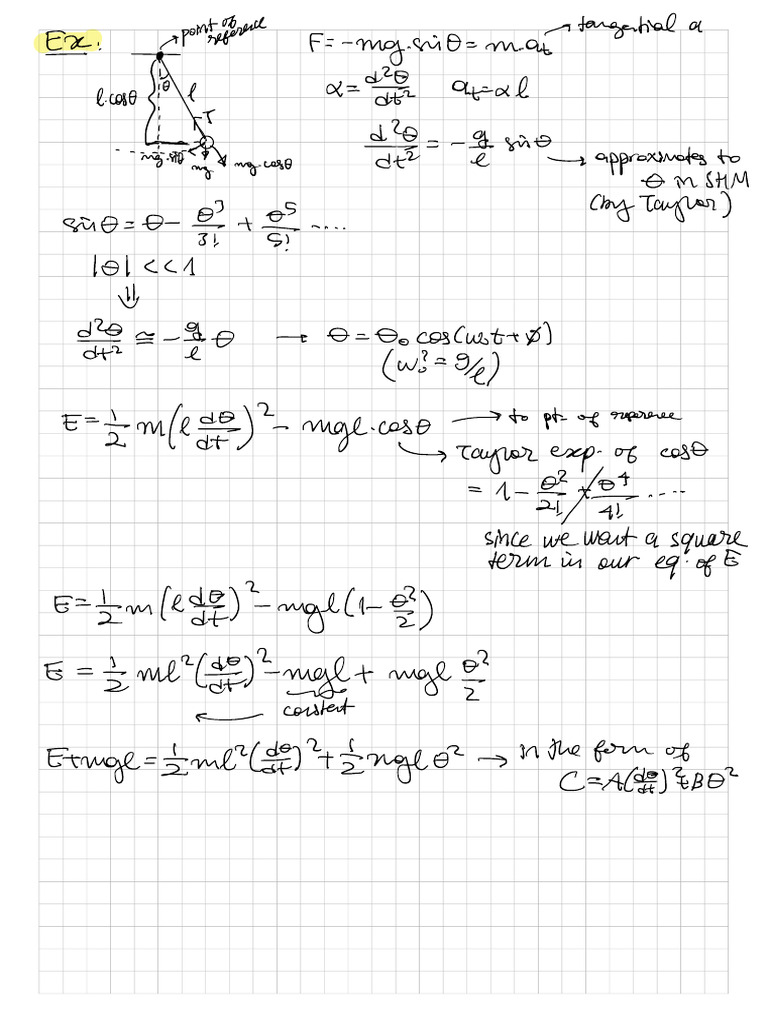 Ex:
point of
reference
l.cosθ
θ
l
T
mg.sinθ
mg
mg.cosθ
F = -mg.sinθ = m.a_t → tangential a
α = d²θ/dt²   a_t = αl
d²θ/dt² = -g/l sinθ → approximates to
θ in SHM
(by Taylor)
sinθ = θ - θ³/3! + θ⁵/5! ....
|θ| << 1
⇓
d²θ/dt² ≅ -g/l θ → θ = θ₀ cos(ω₀t + ϕ)
(ω₀² = g/l)
E = 1/2 m(l dθ/dt)² - mgl.cosθ → to pt. of reference
→ Taylor exp. of cosθ
= 1 - θ²/2! + θ⁴/4! ....
since we want a square
term in our eq. of E
E = 1/2 m(l dθ/dt)² - mgl(1 - θ²/2)
E = 1/2 ml²(dθ/dt)² - mgl + mgl θ²/2
← constant
E+mgl = 1/2 ml²(dθ/dt)² + 1/2 mgl θ² → in the form of
C = A(dθ/dt)² + Bθ²